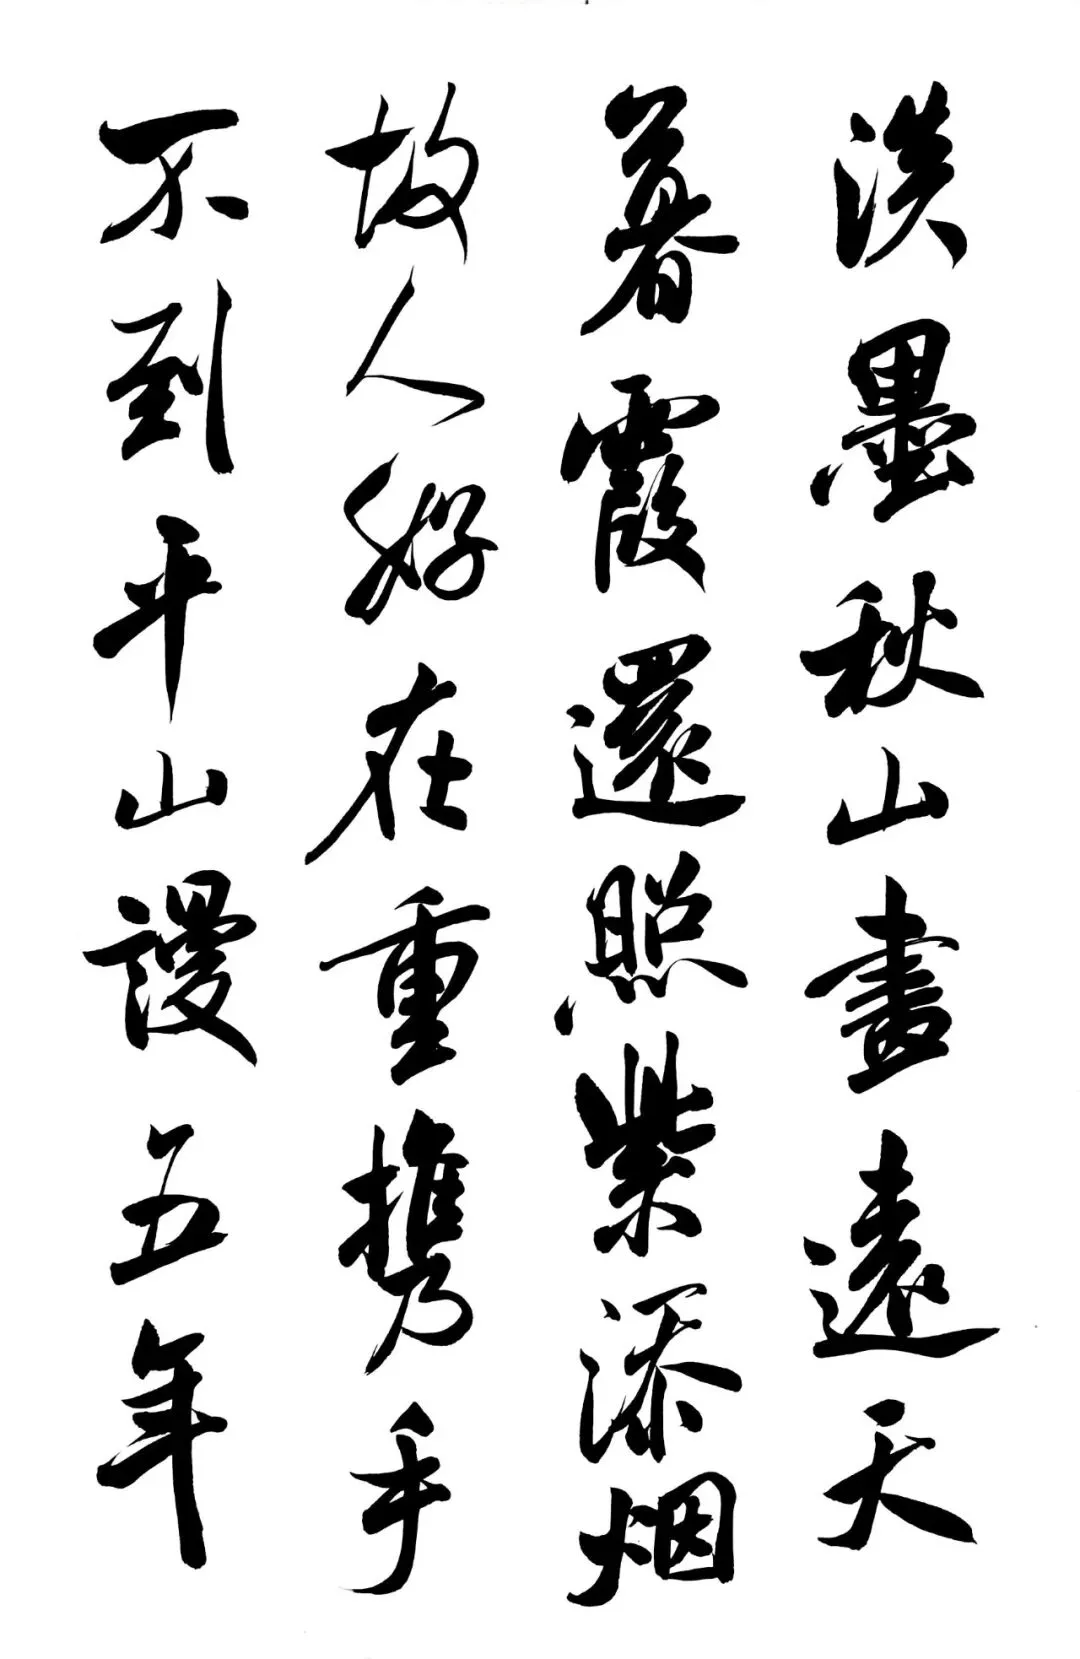 淡墨秋山畫遠天
暮霞還照紫添烟
故人好在重携手
不到平山謾五年